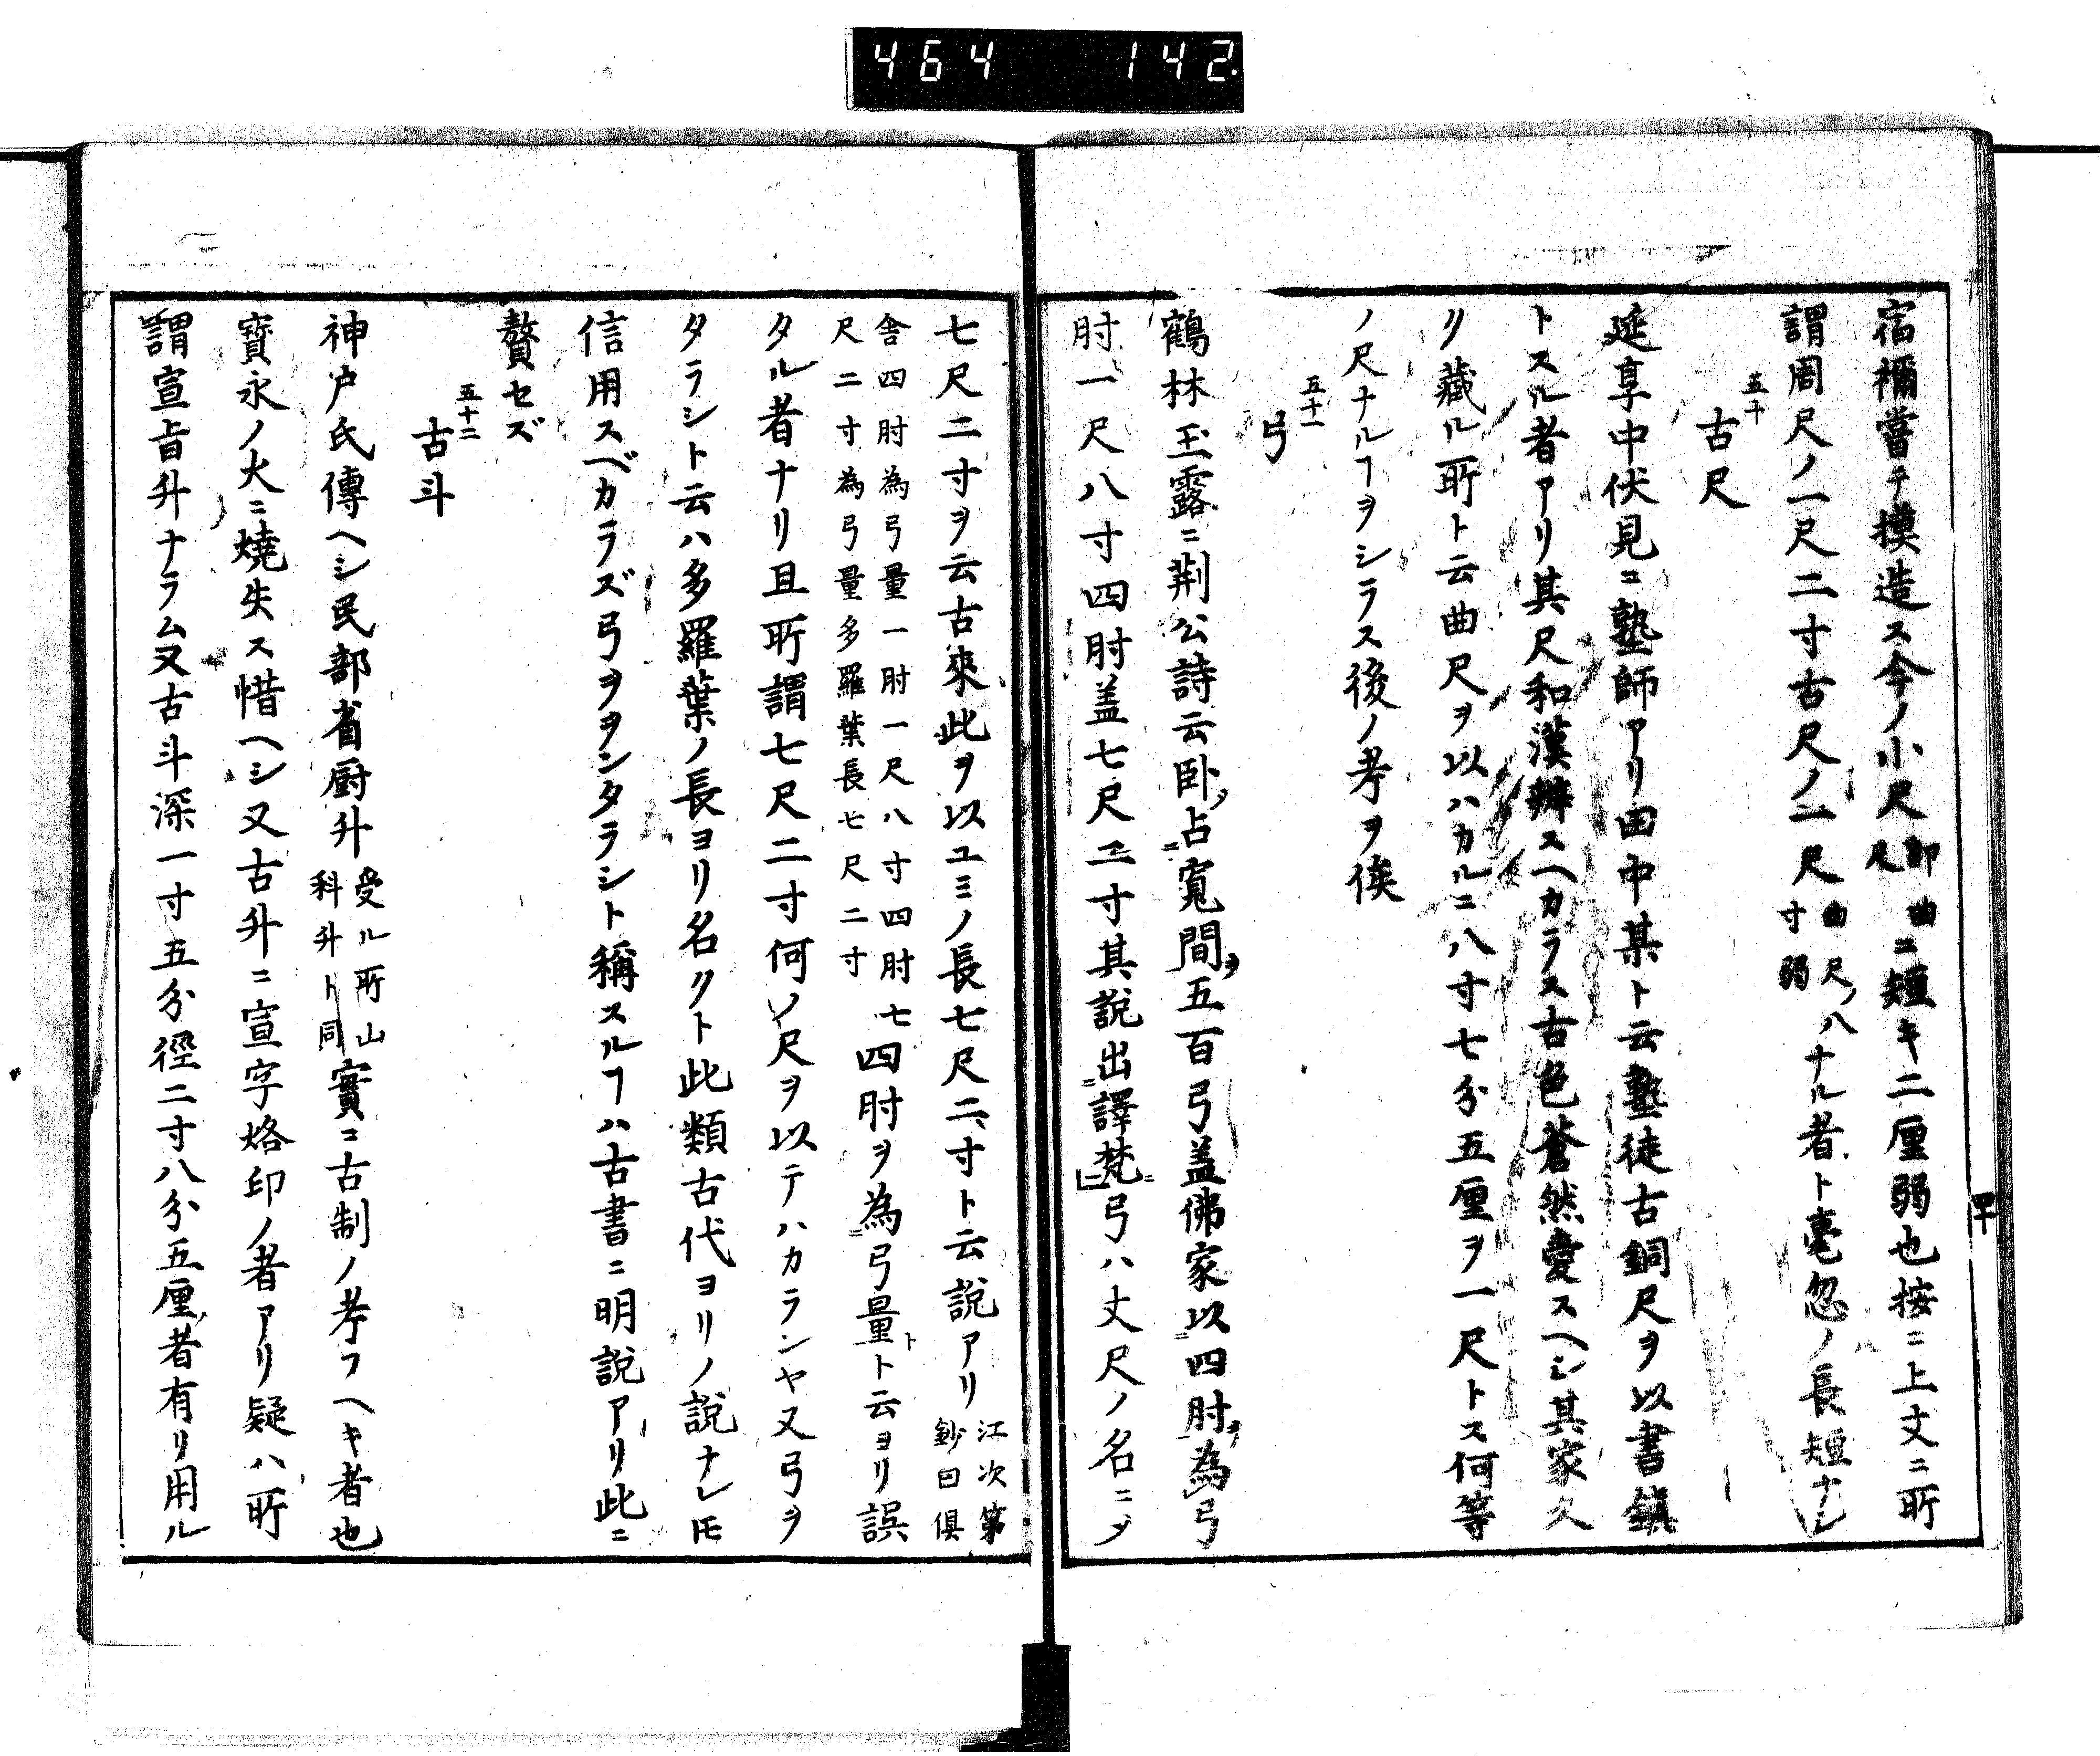 464 142.
宿禰嘗テ摸造ス今ノ小尺即曲尺ニ短キ二厘弱也按ニ上丈ニ所
謂周尺ノ一尺二寸古尺ノ一尺曲尺ノ八寸弱ナル者ト毫忽ノ長短ナレ
五十
古尺
延享中伏見ニ塾師アリ田中某ト云塾徒古銅尺ヲ以書鎮
トスル者アリ其尺和漢辨スヘカラス古色蒼然愛スヘシ其家久
リ藏ル所ト云曲尺ヲ以ハカルニ八寸七分五厘ヲ一尺トス何等
ノ尺ナルヿヲシラス後ノ考ヲ俟
五十一
弓
鶴林玉露ニ荆公詩云卧占寬間五百弓盖佛家以四肘為弓
肘一尺八寸四肘盖七尺二寸其說出譯梵弓ハ丈尺ノ名ニメ
四十
七尺二寸ヲ云古來此ヲ以ユミノ長七尺二寸ト云說アリ江次第鈔曰俱
舎四肘為弓量一肘一尺八寸四肘七
尺二寸為弓量多羅葉長七尺二寸
四肘ヲ為弓量ト云ヨリ誤
タル者ナリ且所謂七尺二寸何ノ尺ヲ以テハカランヤ又弓ヲ
タラシト云ハ多羅葉ノ長ヨリ名クト此類古代ヨリノ說ナレ𪜈
信用スベカラズ弓ヲヲンタラシト稱スルヿハ古書ニ明說アリ此ニ
贅セズ
五十二
古斗
神戸氏傳ヘシ民部省厨升受ル所山科升ト同實ニ古制ノ考フヘキ者也
寶永ノ火ニ燒失ス惜ヘシ又古升ニ宣字烙印ノ者アリ疑ハ所
謂宣旨升ナラム又古斗深一寸五分徑二寸八分五厘者有リ用ル